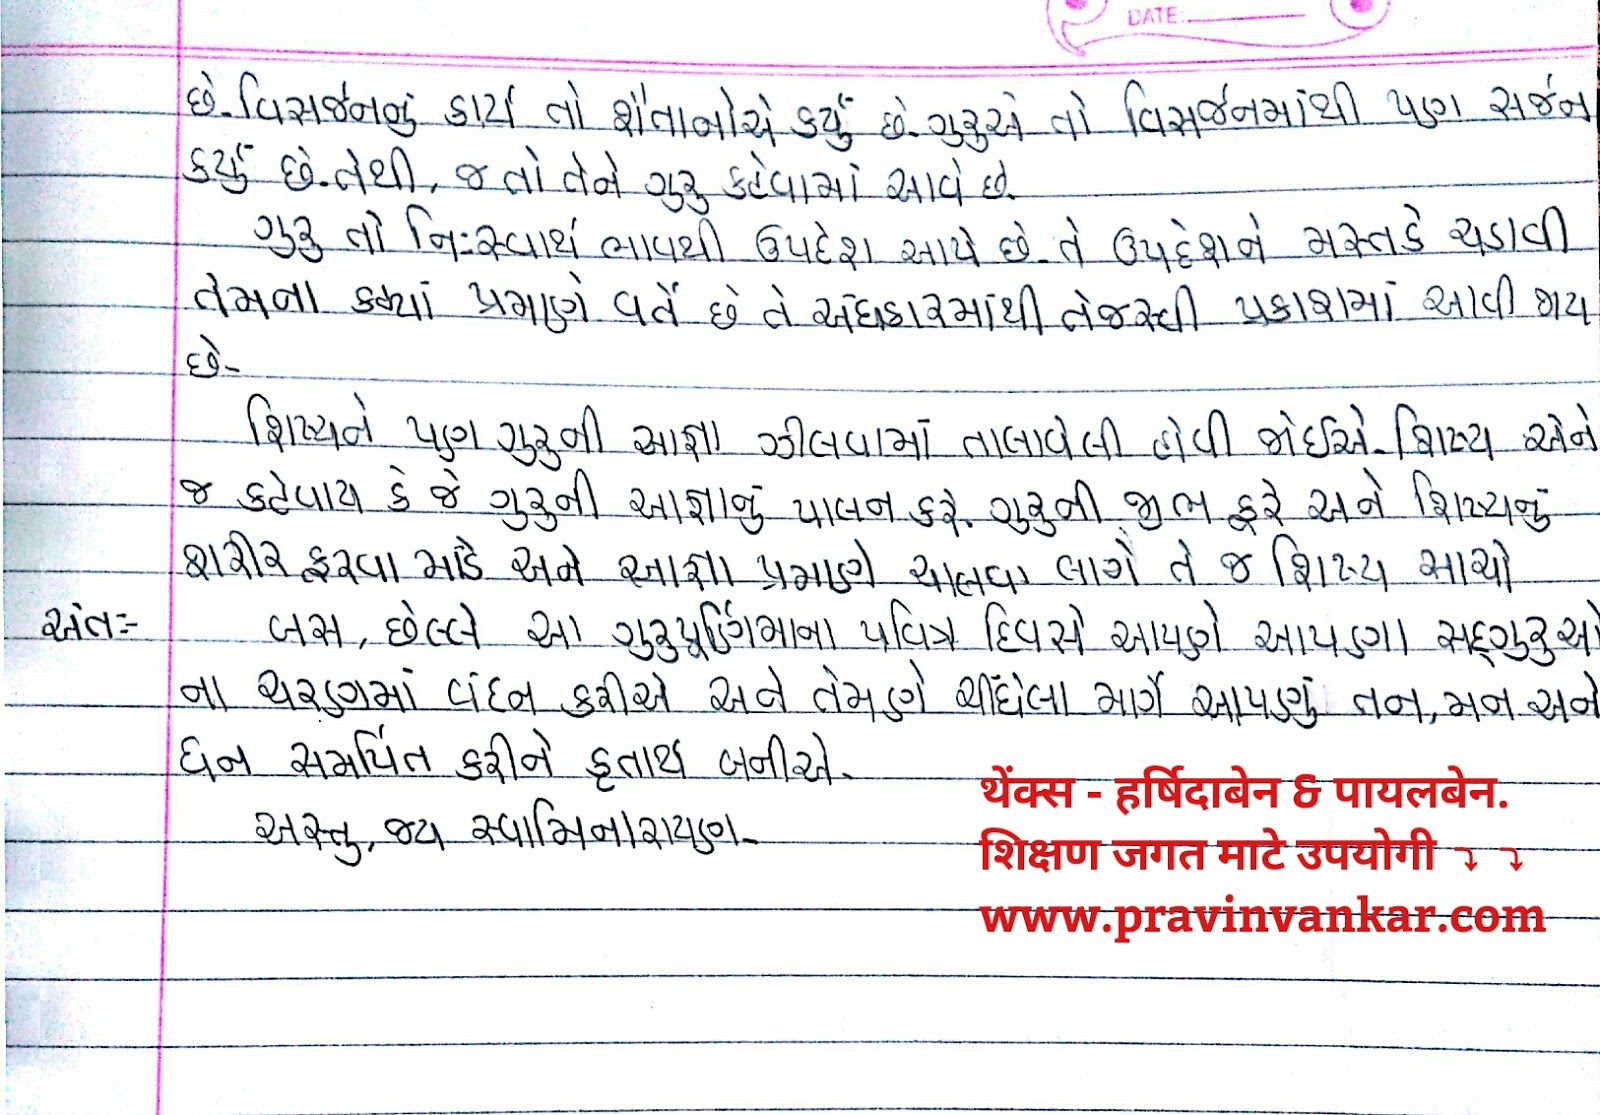 DATE:
છે. વિસર્જનનું કાર્ય તો શૈતાનોએ કર્યું છે. ગુરુએ તો વિસર્જનમાંથી પણ સર્જન
કર્યું છે. તેથી, જ તો તેને ગુરુ કહેવામાં આવે છે.
ગુરુ તો નિઃસ્વાર્થ ભાવથી ઉપદેશ આપે છે. તે ઉપદેશને મસ્તકે ચડાવી
તેમના કહ્યાં પ્રમાણે વર્તે છે તે અંધકારમાંથી તેજસ્વી પ્રકાશમાં આવી જાય
છે.
શિષ્યને પણ ગુરુની આજ્ઞા ઝીલવામાં તાલાવેલી હોવી જોઈએ. શિષ્ય એને
જ કહેવાય કે જે ગુરુની આજ્ઞાનું પાલન કરે. ગુરુની જીભ ફરે અને શિષ્યનું
શરીર ફરવા માંડે અને આજ્ઞા પ્રમાણે ચાલવા લાગે તે જ શિષ્ય સાચો
અંતઃ- બસ, છેલ્લે આ ગુરુપૂર્ણિમાના પવિત્ર દિવસે આપણે આપણા સદ્ગુરુઓ
ના ચરણમાં વંદન કરીએ અને તેમણે ચીંધેલા માર્ગે આપણું તન, મન અને
ધન સમર્પિત કરીને કૃતાર્થ બનીએ.
અસ્તુ, જય સ્વામિનારાયણ.
થેંક્સ - હર્ષિદાબેન & પાયલબેન.
શિક્ષણ જગત માટે ઉપયોગી ⤵ ⤵
www.pravinvankar.com